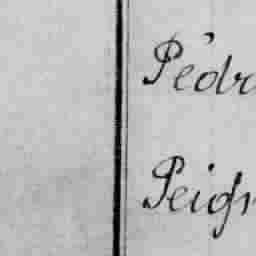 Pédr
Peign